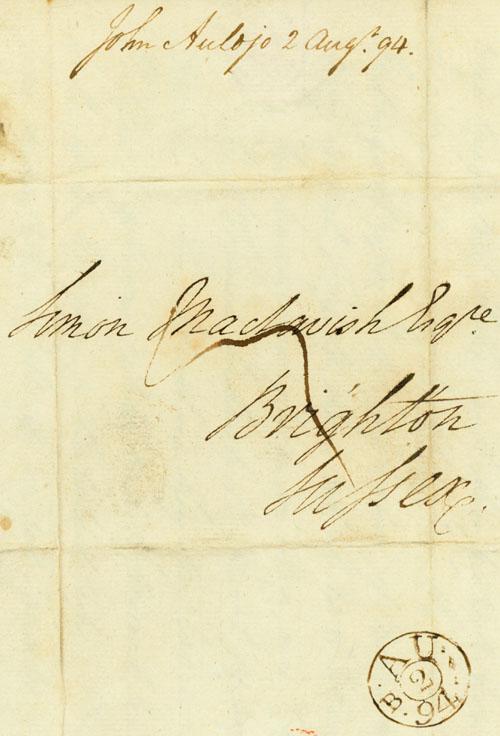 John Auldjo 2 Augt. 94.
Simon Mactavish Esqre
7
Brighton
Sussex.
AU
2
B. 94